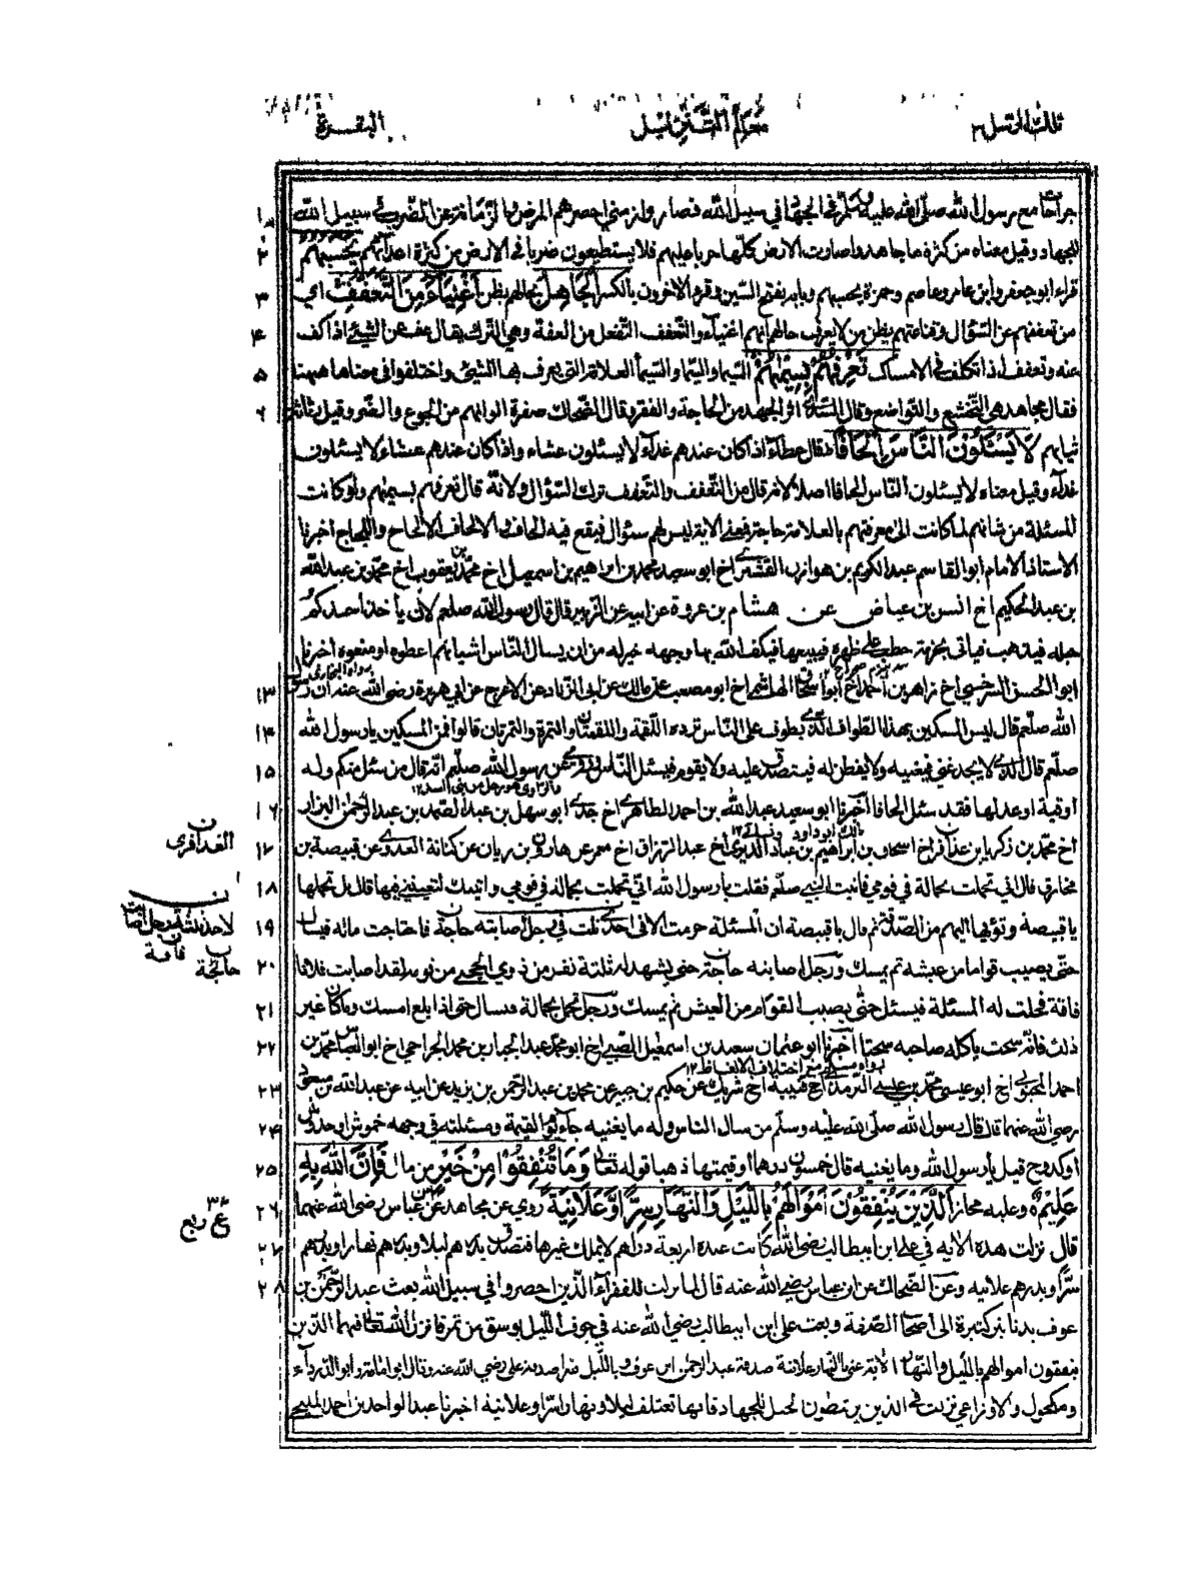 ثلث الرسل ٣
معالم التنزيل
البقرة
جراحا مع رسول الله صلى الله عليه وسلم في الجهاد في سبيل الله فصاروا زمنى احصرهم المرض والزمانة عن الضرب في سبيل الله ١
للجهاد وقيل معناه من كثرة ما جاهدوا صارت الارض كلها حربا عليهم فلا يستطيعون ضربا في الارض من كثرة اعدائهم يحسبهم ٢
قراء ابو جعفر وابن عامر وعاصم وحمزة يحسبهم وبابه بفتح السين وقرء الاخرون بالكسر الْجَاهِلُ بحالهم يظن أَغْنِيَاءَ مِنَ التَّعَفُّفِ اي ٣
من تعففهم عن السؤال وقناعتهم يظن من لا يعرف حالهم انهم اغنياء والتعفف التفعل من العفة وهي الترك يقال عف عن الشيء اذا كف ٤
عنه وتعفف اذا تكلف في الامساك تَعْرِفُهُمْ بِسِيمٰهُمْ السيما والسيميا والسيما العلامة التي يعرف بها الشيئ واختلفوا في معناها ههنا ٥
فقال مجاهد هي التخشع والتواضع وقال السدي اثر الجهد من الحاجة والفقر وقال الضحاك صفرة الوانهم من الجوع والضر وقيل رثاثة ٦
ثيابهم لَا يَسْئَلُوْنَ النَّاسَ إِلْحَافًا قال عطاء اذا كان عندهم غداء لا يسئلون عشاء واذا كان عندهم عشاء لا يسئلون
غداء وقيل معناه لا يسئلون الناس الحافا اصلا لانه قال من التعفف والتعفف ترك السؤال ولانه قال تعرفهم بسيمٰهم ولو كانت
المسئلة من شانهم لما كانت الى معرفتهم بالعلامة حاجة فمعنى الاية ليس لهم سئوال فيقع فيه الحاف والالحاف الالحاح واللجاج اخبرنا
الاستاذ الامام ابو القاسم عبد الكريم بن هوازن القشيري اخ ابو سعيد محمد بن ابراهيم بن اسمعيل اخ محمد بن يعقوب اخ محمد بن عبد الله
بن عبد الحكيم اخ انس بن عياض عن هشام بن عروة عن ابيه عن الزبير قال قال رسول الله صلعم لان ياخذ احدكم
حبله فيذهب فياتى بحزمة حطب على ظهره فيبيعها فيكف الله بها وجهه خير له من ان يسال الناس اشيائهم اعطوه او منعوه اخبرنا
رواه البخاري
ابو الحسن السرخسي اخ زاهر بن احمد اخ ابو اسحاق الهاشمي اخ ابو مصعب عن مالك عن ابي الزناد عن الاعرج عن ابي هريرة رضى الله عنه ان رسول ١٣
الله صلعم قال ليس المسكين بهذا الطواف الذي يطوف على الناس ترده اللقمة واللقمتان والتمرة والتمرتان قالوا فمن المسكين يا رسول الله ١٤
صلعم قال الذي لا يجد غنى فيغنيه ولا يفطن له فيتصدق عليه ولا يقوم فيسئل الناس وروي عن رسول الله صلعم انه قال من سئل منكم وله ١٥
اوقية او عدلها فقد سئل الحافا اخبرنا ابو سعيد عبد الله بن احمد الطاهري اخ جدي ابو سهل بن عبد الصمد بن عبد الرحمن البزار ١٦
اخ محمد بن زكريا بن عذافر اخ اسحاق بن ابراهيم بن عباد الدبري اخ عبد الرزاق اخ معمر عن هارون بن ريان عن كنانة العدوي عن قبيصة بن ١٧
ن
العذافري
مخارق قال اني تحملت بحمالة في قومي فاتيت النبي صلعم فقلت يا رسول الله اني تحملت بحمالة في قومي واتيتك لتعينني فيها قال بل نحملها ١٨
يا قبيصة ونؤديها اليهم من الصدقة ثم قال يا قبيصة ان المسئلة حرمت الا في احدى ثلث في رجل اصابته حاجة فاحتاجت ماله فيسال ١٩
حتى يصيب قواما من عيشه ثم يمسك ورجل اصابته حاجة حتى يشهد له ثلثة نفر من ذوي الحجى من قومه لقد اصابت فلانا ٢٠
ن
فاقة
ن
حائجة
فاقة فحلت له المسئلة فيسئل حتى يصيب القوام من العيش ثم يمسك ورجل تحمل بحمالة فسال حتى اذا بلغ امسك وما كان غير ٢١
ذلك فانه سحت ياكله صاحبه سحتا اخبرنا ابو عثمان سعيد بن اسمعيل الضبي اخ ابو محمد عبد الجبار بن محمد الجراحي اخ ابو العباس محمد بن ٢٢
رواه مسلم مع اختلاف الالفاظ ١٢
احمد المحبوبي اخ ابو عيسى محمد بن عيسى الترمذي اخ قتيبة اخ شريك عن حكيم بن جبير عن محمد بن عبد الرحمن بن يزيد عن ابيه عن عبد الله بن مسعود ٢٣
رضي الله عنهما قال قال رسول الله صلى الله عليه وسلم من سال الناس وله ما يغنيه جاء يوم القيمة ومسئلته في وجهه خموش او خدوش ٢٤
او كدوح قيل يا رسول الله وما يغنيه قال خمسون درهما او قيمتها ذهبا قوله تعالى وَمَا تُنْفِقُوْا مِنْ خَيْرٍ من مال فَإِنَّ اللّٰهَ بِهٖ ٢٥
عَلِيْمٌ وعليه مجاز اَلَّذِيْنَ يُنْفِقُوْنَ أَمْوَالَهُمْ بِاللَّيْلِ وَالنَّهَارِ سِرًّا وَّعَلَانِيَةً روي عن مجاهد عن ابن عباس رضى الله عنهما ٢٦
ع ربع
قال نزلت هذه الاية في علي ابن ابيطالب رضى الله كانت عنده اربعة دراهم لا يملك غيرها فتصدق بدرهم ليلا وبدرهم نهارا وبدرهم ٢٧
سرا وبدرهم علانيه وعن الضحاك عن ابن عباس رضي الله عنه قال لما نزلت للفقراء الذين احصروا في سبيل الله بعث عبد الرحمن بن ٢٨
عوف بدنانير كثيرة الى اصحاب الصفة وبعث علي ابن ابيطالب رضي الله عنه في جوف الليل بوسق من تمر فانزل الله تعالى فيهما الذين
ينفقون اموالهم بالليل والنهار الاية عنى بالنهار علانية صدقة عبد الرحمن ابن عوف وبالليل سرا صدقة علي رضي الله عنه وقال ابو امامة وابو الدرداء
ومكحول والاوزاعي نزلت في الذين يرتبطون الخيل للجهاد فانها تعتلف ليلا ونهارا سرا وعلانية اخبرنا عبد الواحد بن احمد المليحي